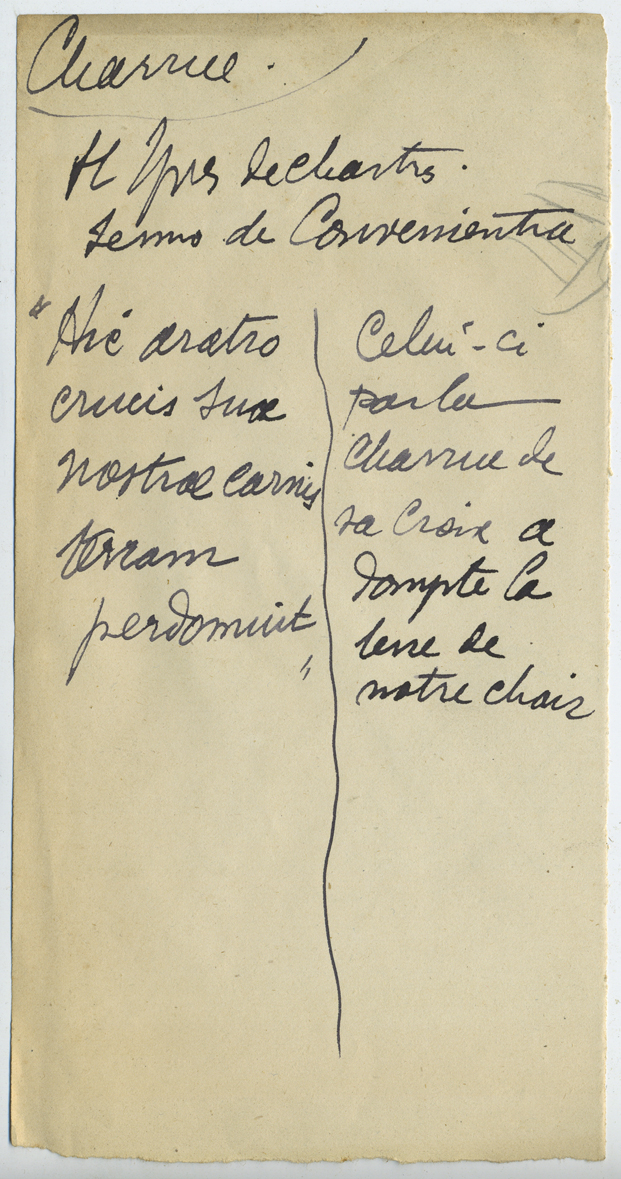 Charrue.
St Yves de Chartres.
Sermo de Convenientia
"Hic aratro
crucis suae
nostrae carnis
terram
perdomuit
"
Celui-ci
par la
charrue de
sa Croix a
dompté la
terre de
notre chair